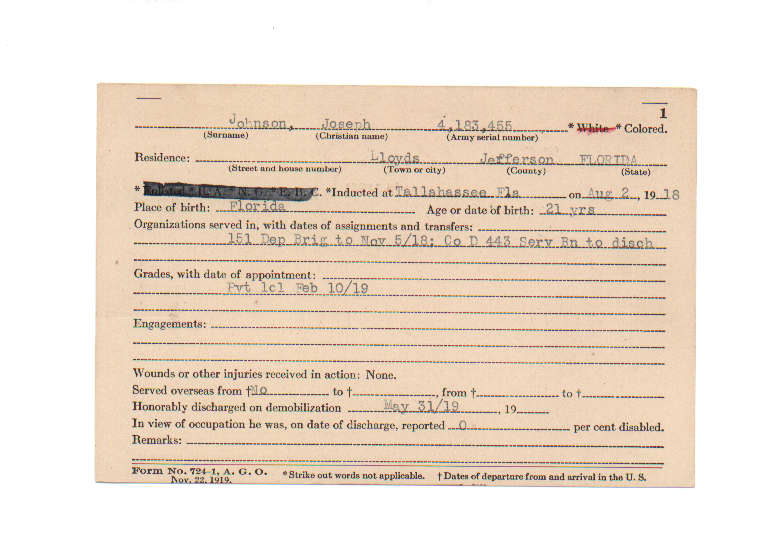 1
Johnson, Joseph 4,183,455 * White * Colored.
(Surname) (Christian name) (Army serial number)
Residence: Lloyds Jefferson FLORIDA
(Street and house number) (Town or city) (County) (State)
* Enlisted * R. A. * N. G. * E. R. C. *Inducted at Tallahassee Fla on Aug 2, 1918
Place of birth: Florida Age or date of birth: 21 yrs
Organizations served in, with dates of assignments and transfers:
151 Dep Brig to Nov 5/18; Co D 443 Serv Bn to disch
Grades, with date of appointment:
Pvt 1cl Feb 10/19
Engagements:
Wounds or other injuries received in action: None.
Served overseas from †No to †, from † to †
Honorably discharged on demobilization May 31/19, 19
In view of occupation he was, on date of discharge, reported 0 per cent disabled.
Remarks:
Form No. 724-1, A. G. O. *Strike out words not applicable. † Dates of departure from and arrival in the U. S.
Nov. 22, 1919.